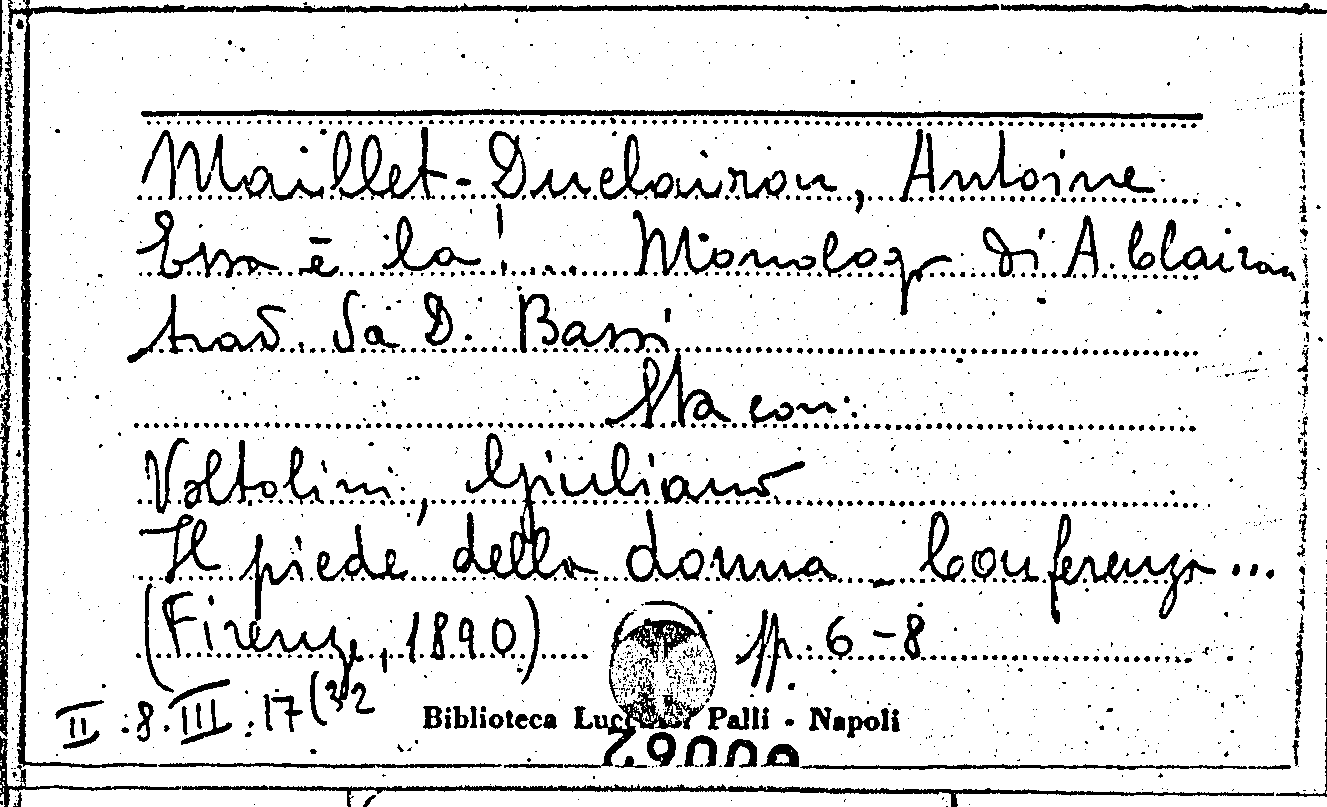 Maillet-Duclairon, Antoine
Essa è la!... Monologo di A. Clairon
trad. da D. Bassi
Sta con:
Voltolini, Giuliano
Il piede della donna - Conferenza...
(Firenze, 1890) pp. 6-8
II.8.III.17(32
Biblioteca Palli - Napoli